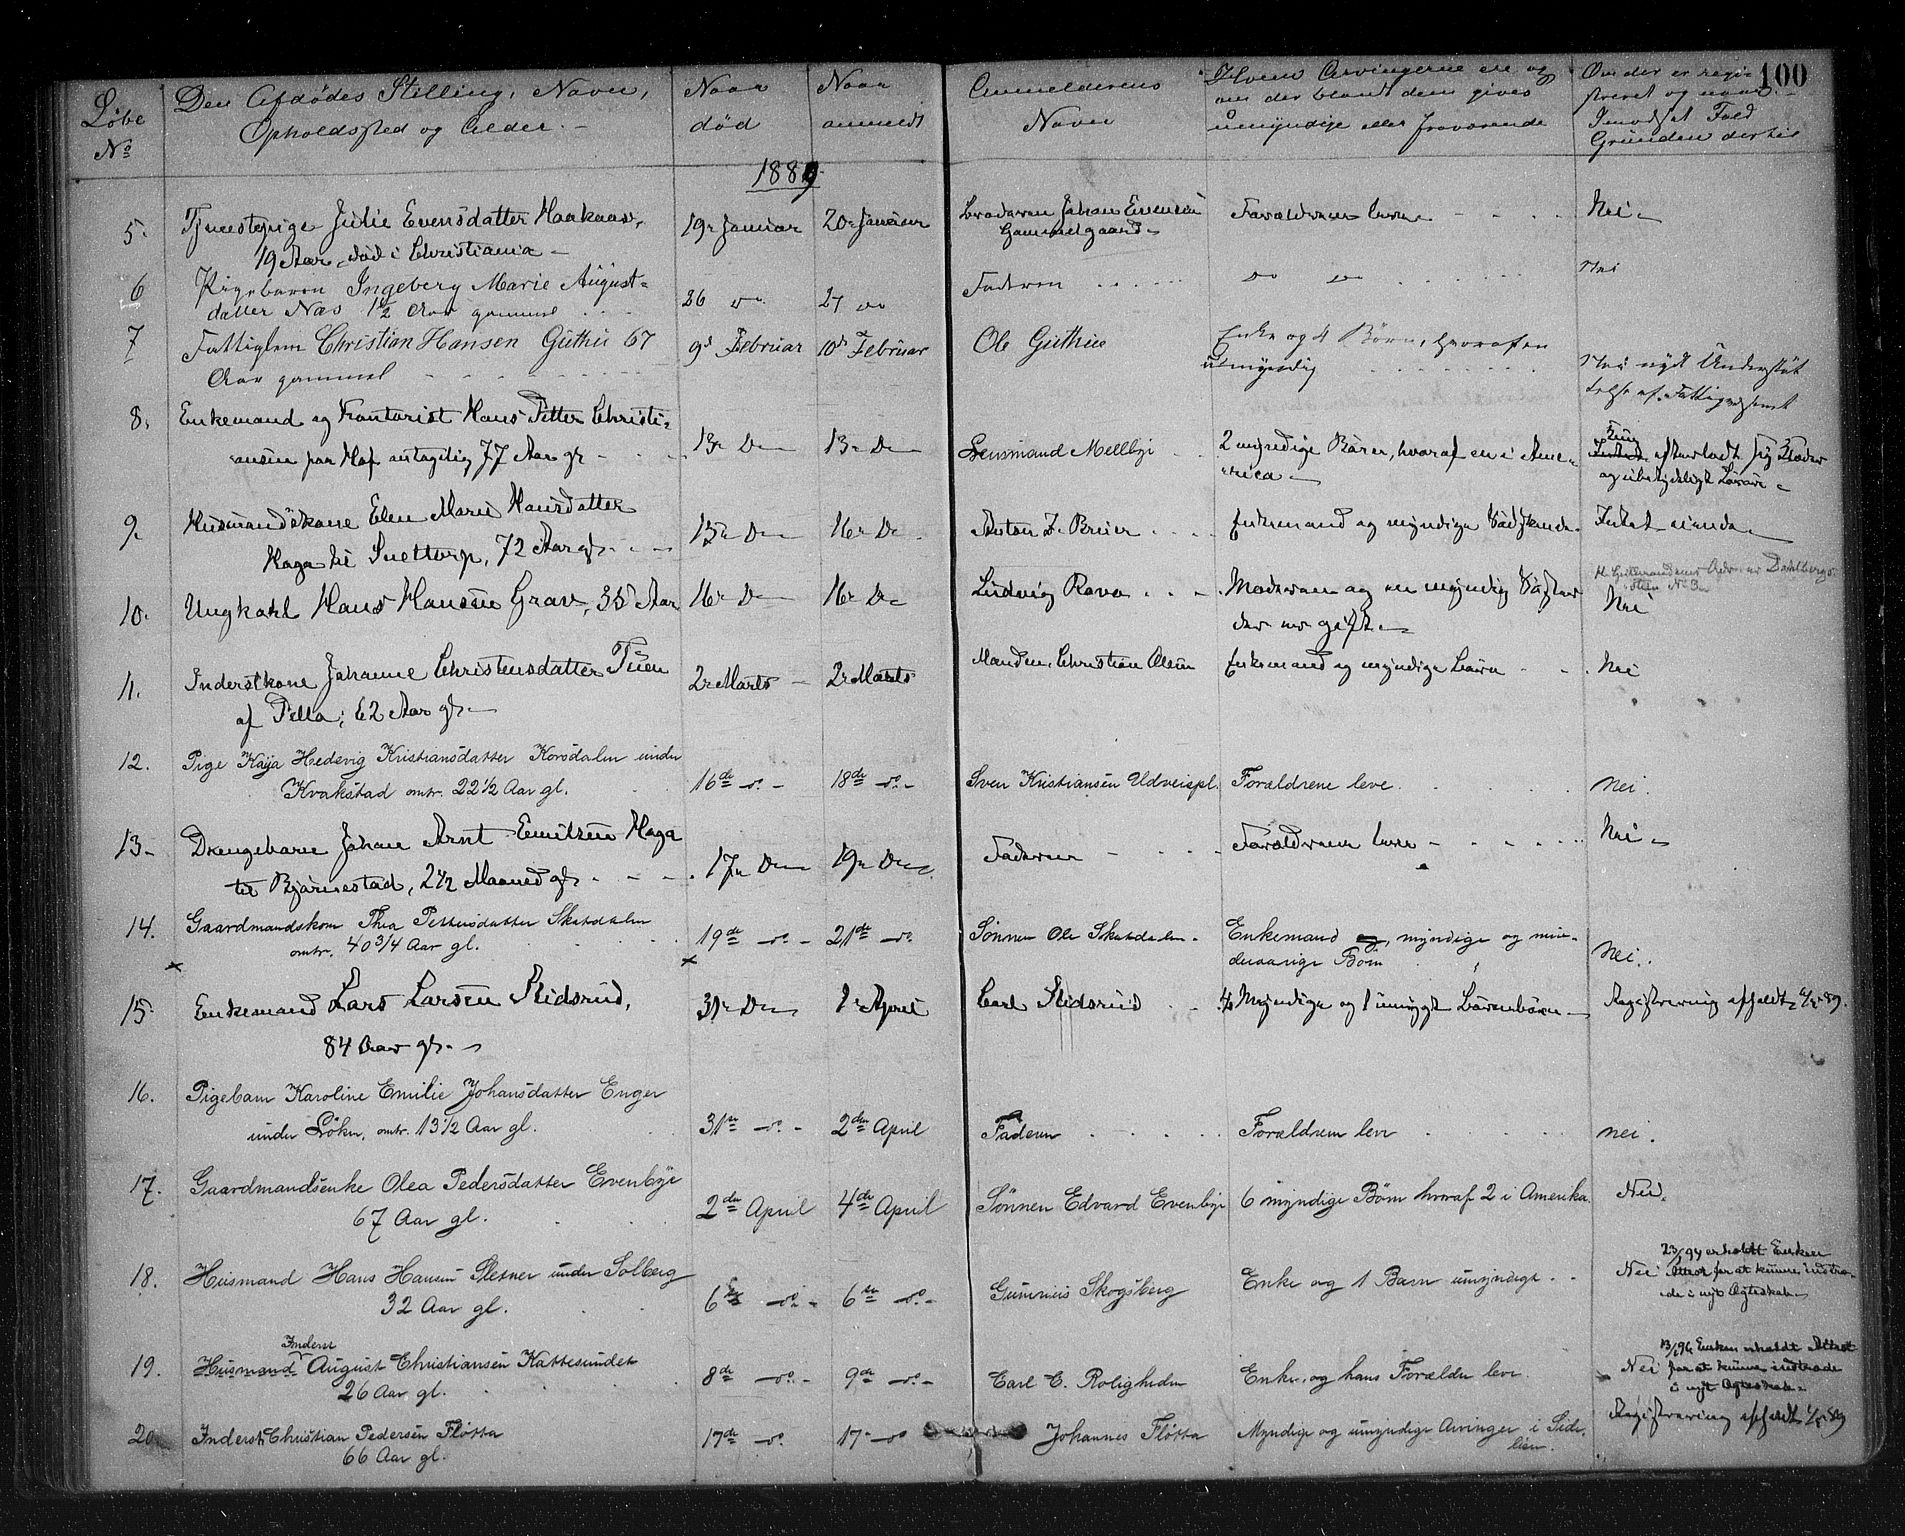 100
Løbe
No
Den Afdødes Stilling, Navn,
Opholdssted og Alder. -
Naar
død
Naar
anmeldt
Anmelderens
Navn
Hvem Arvingerne ere og
om der blandt dem gives
umyndige eller fraværende
Om der er regi-
streret og naar -
I modsat Fald
Grunden dertil
1889
5. Tjenestepige Julie Evensdatter Haakaas, 19r Januar 20r Januar Broderen Johan Evensen Forældrene leve - - - Nei -
19 Aar, død i Christiania - Gammelgaard -
6 Pigebarn Ingeborg Marie August- 26 do 27 do Faderen do do Nei
datter Næs 1½ Aar gammel
7 Fattiglem Christian Hansen Guthu 67 9d Februar 10d Februar Ole Guthu Enke og 4 Børn, hvoraf en
Aar gammel umyndig Nei nydt Understøt
telse af Fattigvæsenet
8. Enkemand og Hans Petter Christi-
ansen paa Hof antagelig 77 Aar gl 13r Do 13r Do Lensmand Mellbye 2 myndige Børn, hvoraf en i Ame-
rica - efterladt sig Klæder
og ubetydeligt Løsøre -
9. Husmandskone Elen Marie Hansdatter
Haga til Snettorp, 72 Aar gl. - - 15r Do 16r Do Anton Enkemand og myndige Sødskende. Intet eiende -
10. Ungkarl Hans Hansen Grav, 35 Aar 16r Do 16r Do Ludvig Moderen og en myndig Søster
der er gift - No 3
Nei
11. Inderstkone Johanne Christensdatter Tuen 2r Marts - 2r Marts Manden, Christian Olsen Enkemand og myndige Børn - - Nei
af Pella, 62 Aar gl. -
12. Pige Kaja Hedevig Kristiansdatter Korsdalen under
Kvakstad omtr. 22 1/2 Aar gl. 16de do - 18de do - Sven Kristiansen Udveispl. Forældrene leve. nei.
13 - Drengebarn Johan Arnt Emilsen Haga
til Bjørnestad, 2½ Maaned gl. - - 17r Do 19r Do Faderen - - - Forældrene leve - - - Nei -
14. Gaardmandskone Thea Pettersdatter Skatdalen
omtr. 40 3/4 Aar gl. 19de do - 21de do Sønnen Ole Skatdalen - Enkemand og, myndige og min-
deraarige Børn nei.
15. Enkemand Lars Larsen Stidsrud, 31r Do 1r April Carl Stidsrud 4 Myndige og 1 umyngt Børnebørn - Registrering afholdt 89.
84 Aar gl. -
16. Pigebarn Karoline Emilie Johansdatter Enger
under Løken, omtr. 13 1/2 Aar gl. 31te do - 2den April Faderen Forældrene leve nei.
17. Gaardmandsenke Olea Pedersdatter Evenbye
67 Aar gl. 2den April 4de April Sønnen Edvard Evenbye 6 myndige Børn hvoraf 2 i Amerika. Nei.
18. Husmand Hans Hansen Pletner under Solberg
32 Aar gl. 6te do - 6te do - Gunnerius Skogsberg Enke og 1 Barn umyndigt
23/ 94 erholdt Enken
Nei Attest for at kunne indtræ-
de i nyt Ægteskab -
19. Husmand Inderst August Christiansen Kattesundet
26 Aar gl. 8de do - 9de do - Carl C. Roligheden Enke, og hans Forældre leve
13/1 96 Enken erholdt Attest
Nei for at kunne indtræde
i nyt Ægteskab -
20 Inderst Christian Pedersen Fløtta 17de do. 17 do Johannes Fløtta Myndige og umyndige Arvinger i Side-
66 Aar gl. linien. Registrering afholdt 89